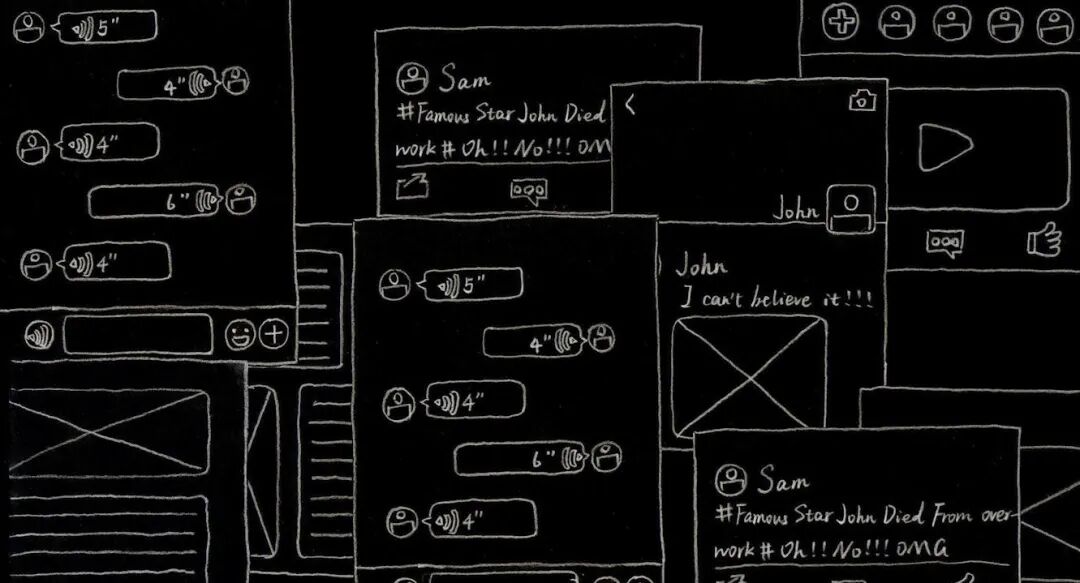 5"
4"
4"
6"
4"
Sam
#Famous Star John Died
work # Oh!! No!!! OM
John
John
I can't believe it!!!
5"
4"
4"
6"
4"
Sam
#Famous Star John Died From over-
work # Oh!! No!!! OMG